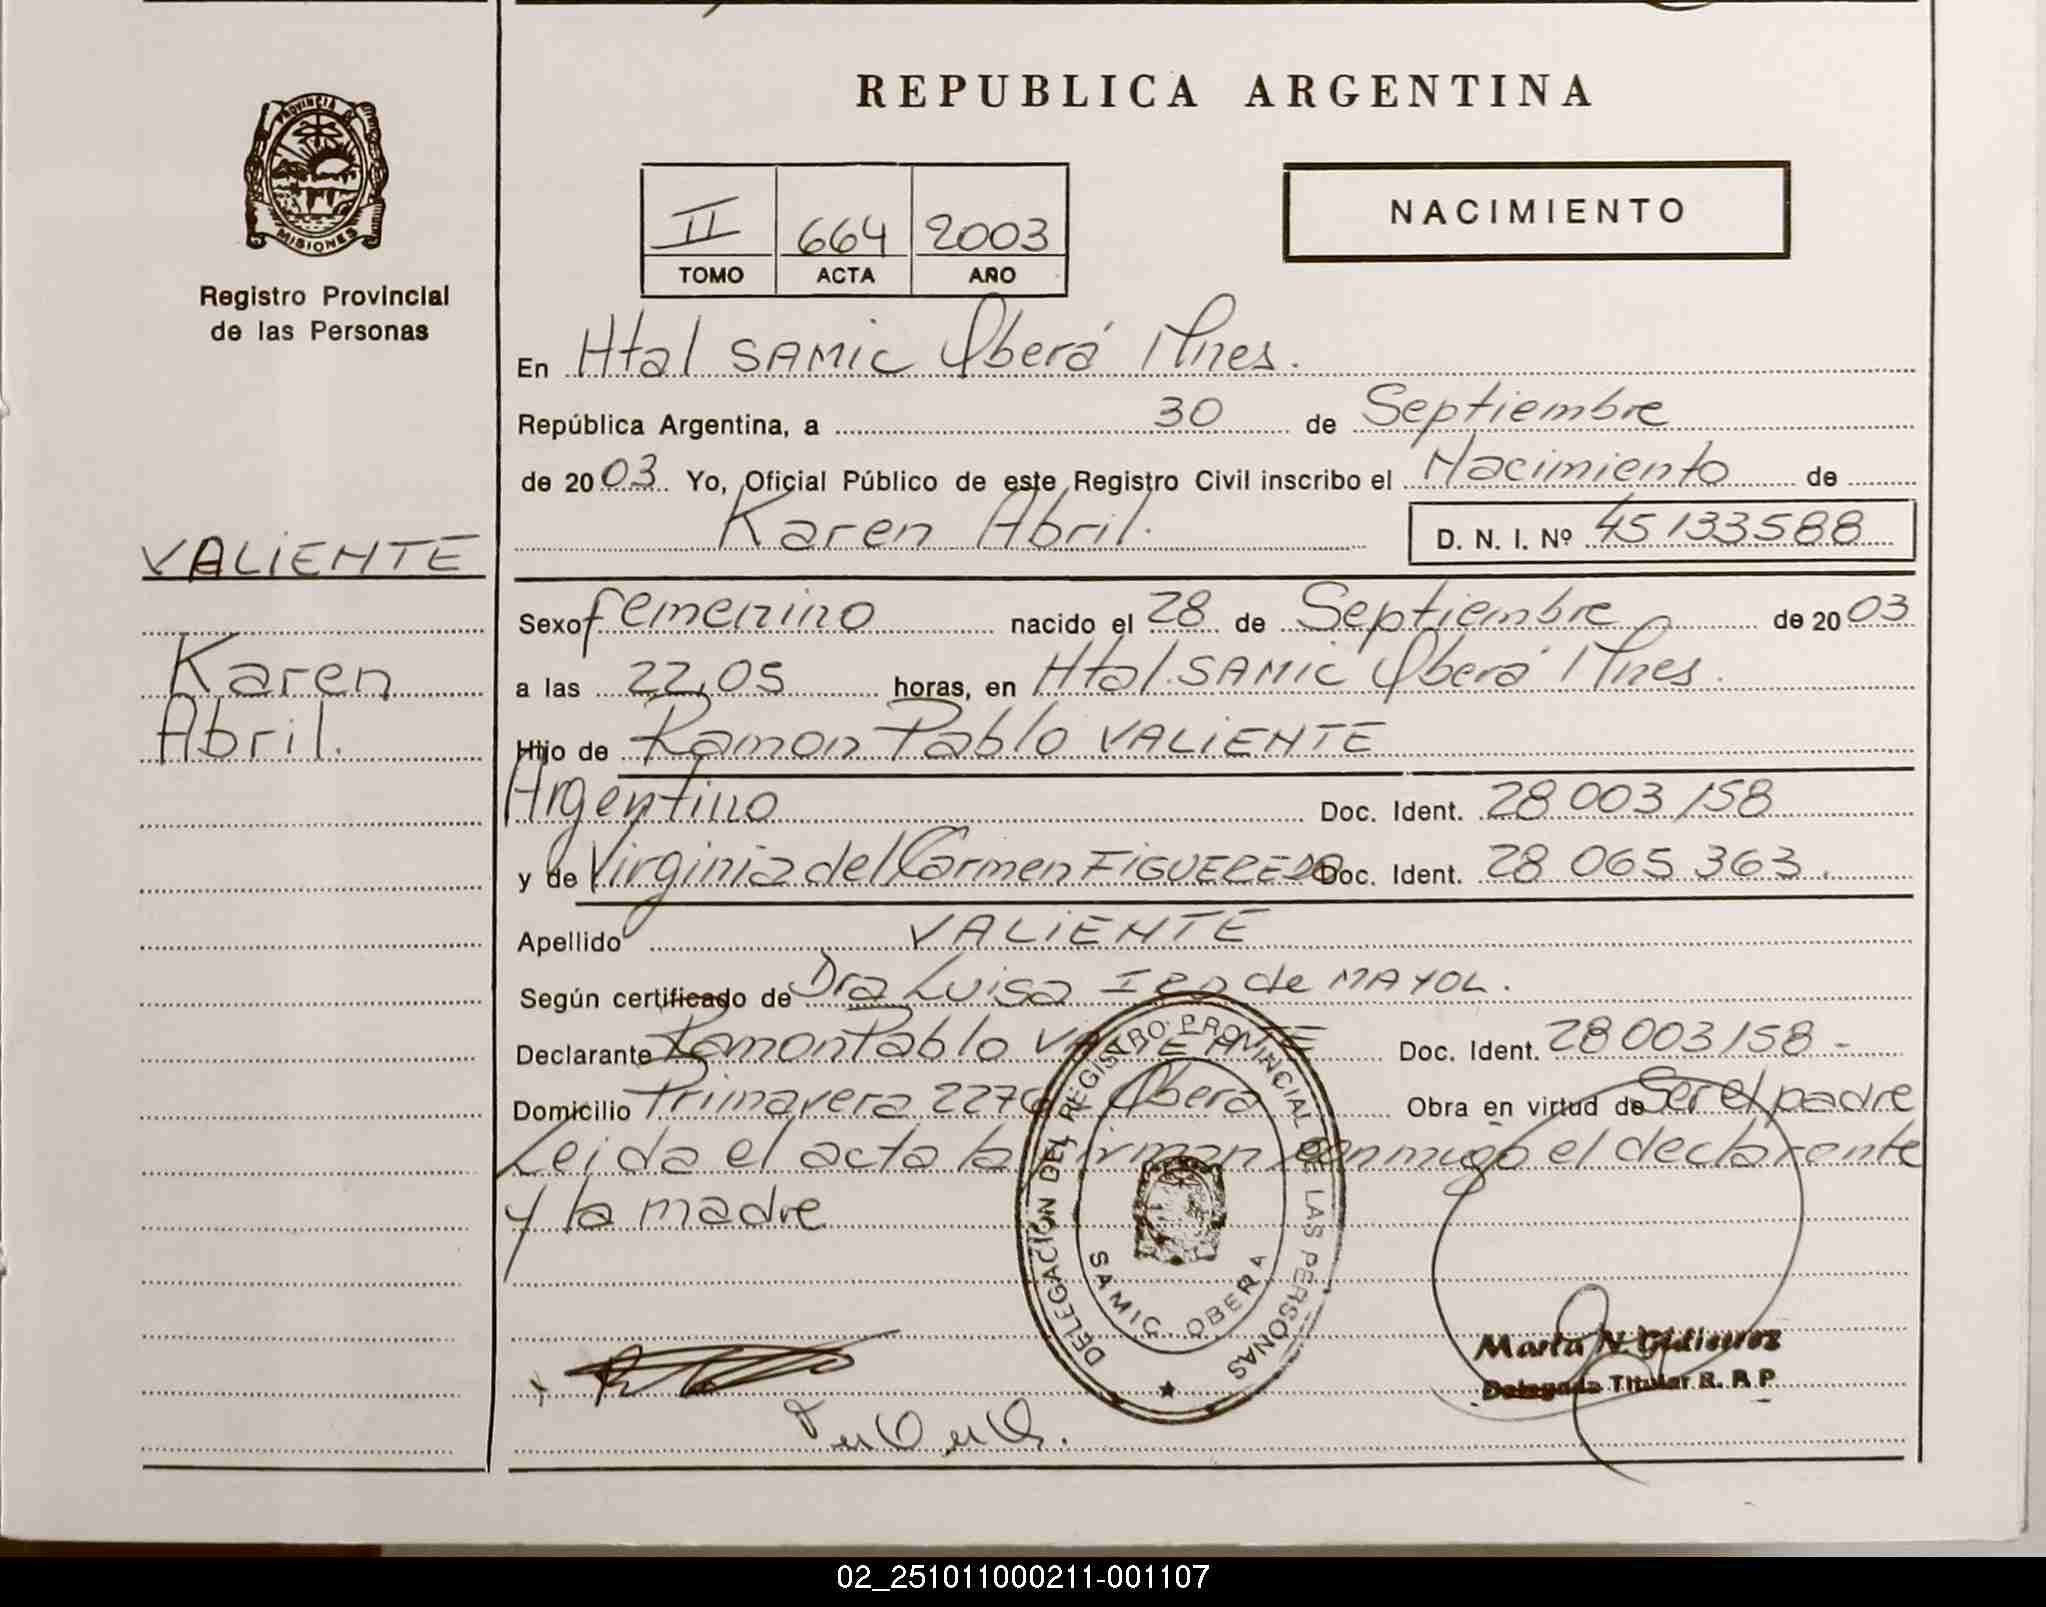 REPUBLICA ARGENTINA
PROVINCIA DE
MISIONES
Registro Provincial
de las Personas
II 664 2003
TOMO ACTA AÑO
NACIMIENTO
En Htal SAMIC Oberá Mnes.
República Argentina, a 30 de Septiembre
de 2003 Yo, Oficial Público de este Registro Civil inscribo el Nacimiento de
Karen Abril. D. N. I. Nº 45133588
VALIENTE
Karen
Abril.
Sexo femenino nacido el 28 de Septiembre de 2003
a las 22,05 horas, en Htal. SAMIC Oberá Mnes.
Hijo de Ramon Pablo VALIENTE
Argentino Doc. Ident. 28 003 158
y de Virginia del Carmen FIGUEREDO Doc. Ident. 28 065 363.
Apellido VALIENTE
Según certificado de Dra Luisa de MAYOL.
Declarante Ramon Pablo VALIENTE Doc. Ident. 28 003 158 -
Domicilio Primavera Oberá Obra en virtud de Ser el padre
Leida el acta la firman conmigo el declarante
y la madre
DELEGACION DEL REGISTRO PROVINCIAL DE LAS PERSONAS
SAMIC OBERA
Marta N. Gutierrez
Delegada Titular R. P. P
02_251011000211-001107